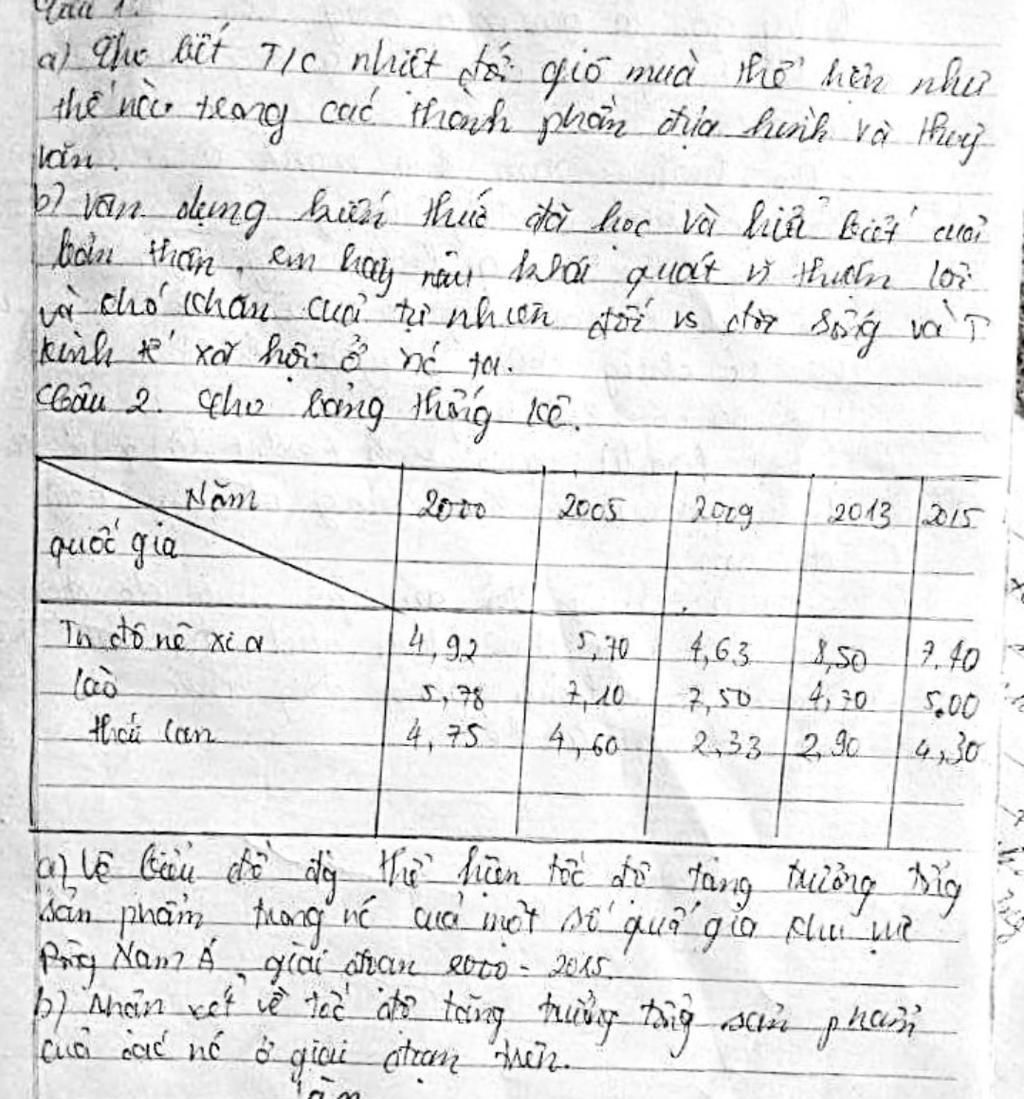 Câu 1.
a) Cho biết T/c nhiệt đới gió mùa thể hiện như
thế nào trong các thành phần địa hình và thuỷ
văn.
b) vận dụng kiến thức đã học và hiểu biết của
bản thân, em hãy nêu khái quát về thuận lợi
và khó khăn của tự nhiên đối vs đời sống và T
kinh tế xã hội ở nc ta.
Câu 2. Cho bảng thống kê.
Năm 2000 2005 2009 2013 2015
quốc gia
In đô nê xi a 4,92 5,70 4,63 8,50 7.40
lào 5,78 7,10 7,50 4,70 5.00
thái lan 4,75 4,60 2,33 2,90 4,30
a) Vẽ biểu đồ đg thể hiện tốc độ tăng trưởng tổng
sản phẩm trong nc của một số quốc gia khu vực
Đông Nam Á, giai đoạn 2000 - 2015.
b) Nhận xét về tốc độ tăng trưởng tổng sản phẩm
của các nc ở giai đoạn trên.